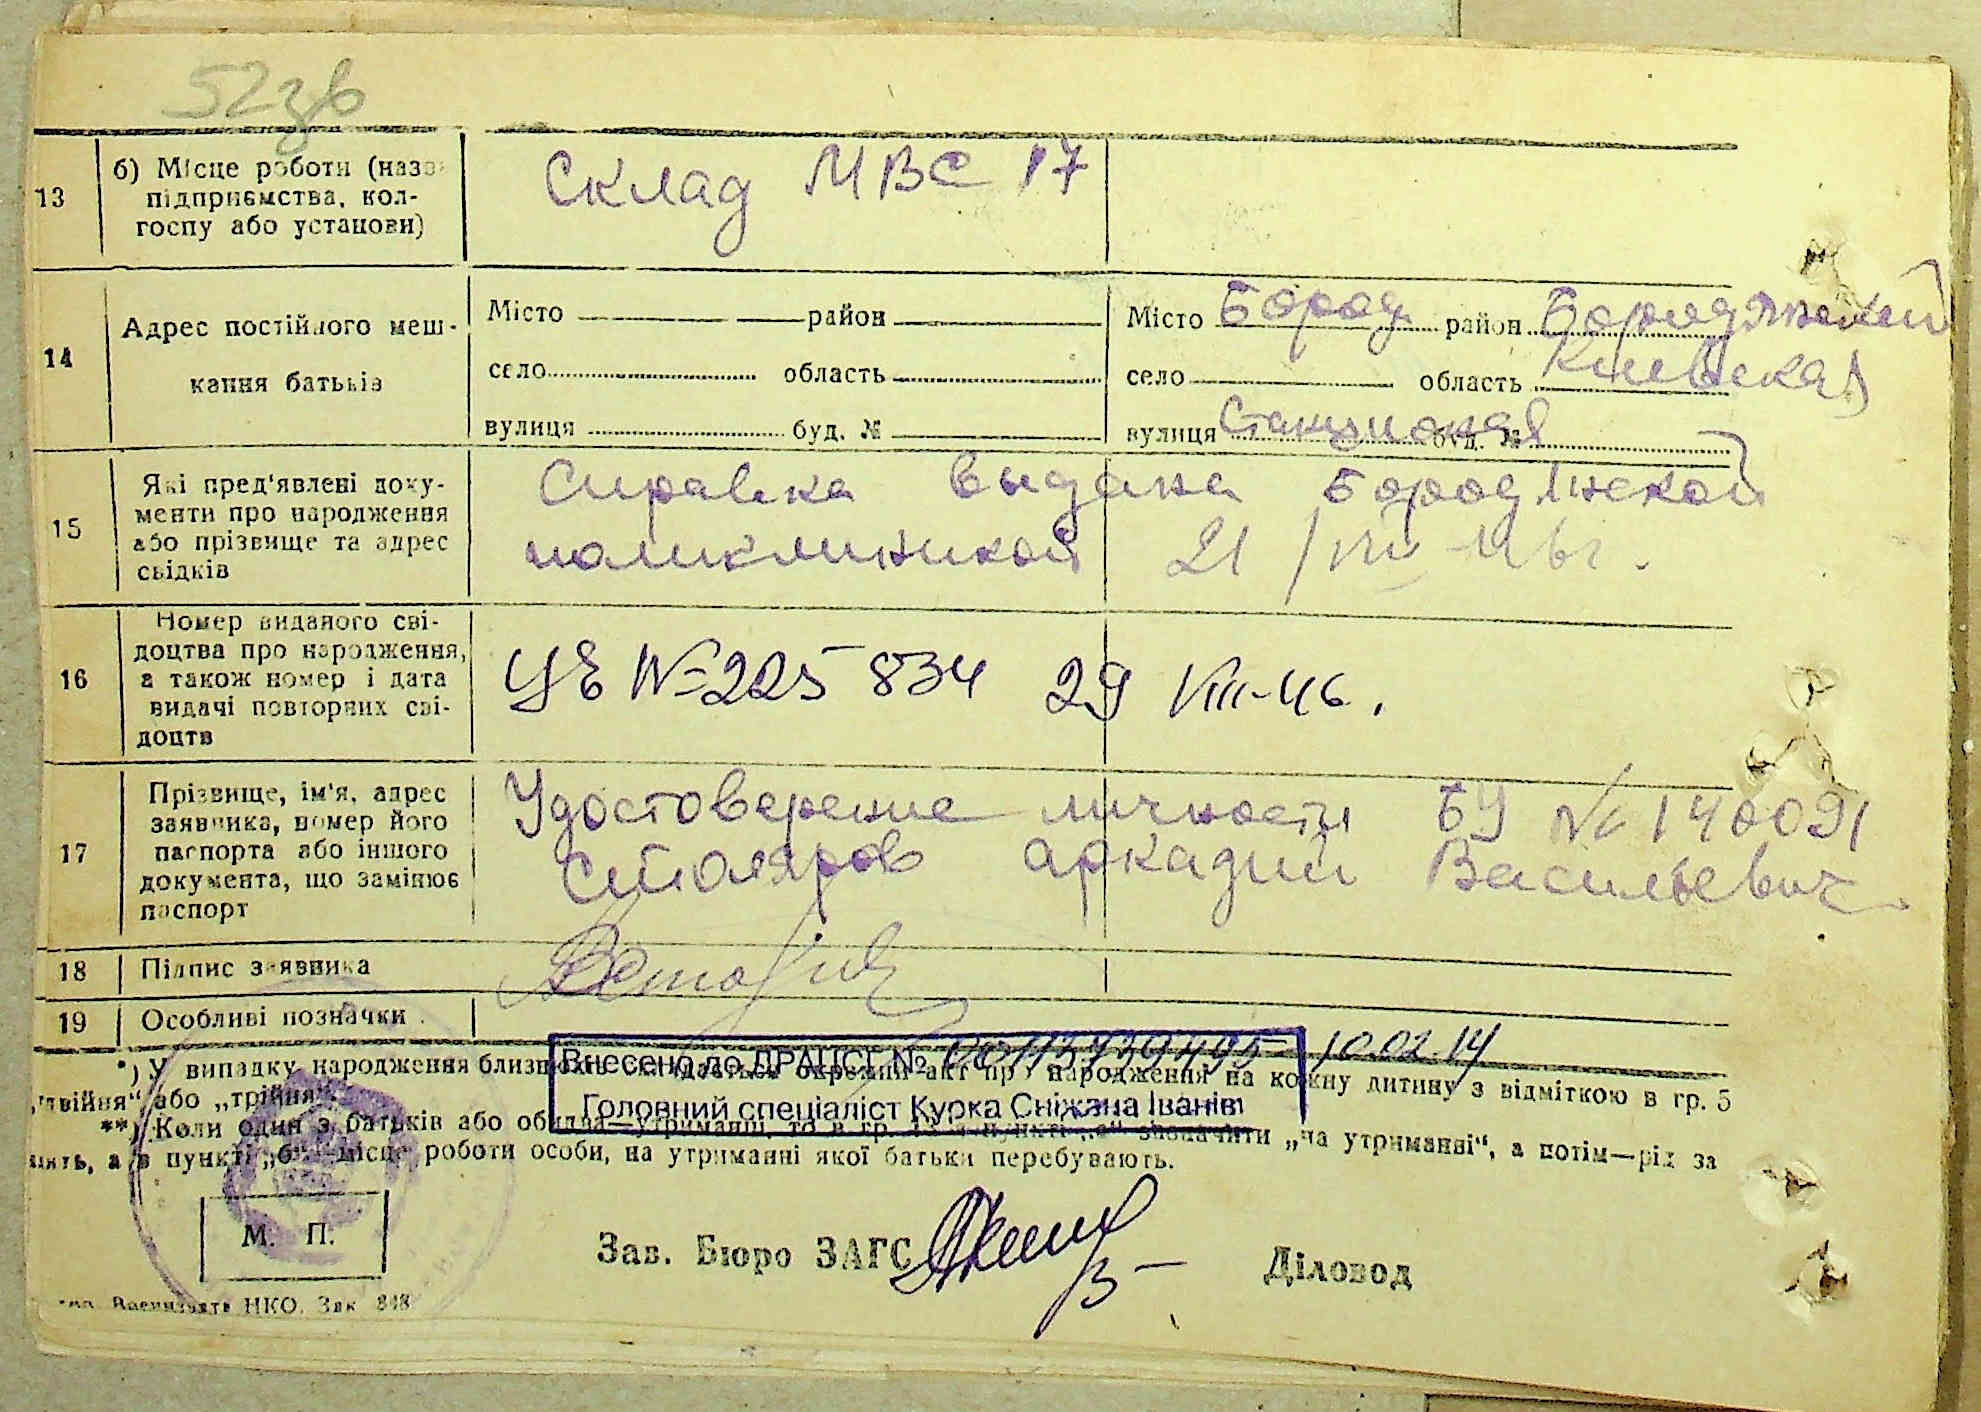 52зв
13 б) Місце роботи (назв Склад МВС 17
підприємства, кол-
госпу або установи)
14 Адрес постійного меш-
кання батьків
Місто район
село область
вулиця буд. №
Місто Бород район Бородянский
село область Киевская
вулиця Станционая буд. №
15 Які пред'явлені доку-
менти про народження
або прізвище та адрес
свідків
Справка выдана Бородянской
поликлиникой 21/VIII-46г.
16 Номер виданого сві-
доцтва про народження,
а також номер і дата
видачі повторних сві-
доцтв
№225834 29 VIII-46.
17 Прізвище, ім'я, адрес
заявника, номер його
паспорта або іншого
документа, що замінює
паспорт
Удостоверение личности БУ № 140091
Столяров Аркадий Васильевич
18 Підпис заявника
19 Особливі позначки
Внесено до ДРАЦСГ № 00115939495 10.02.14
Головний спеціаліст Курка Сніжана Іванівн
*) У випадку народження близнюків складається окремий акт про народження на кожну дитину з відміткою в гр. 5
„двійня“ або „трійня“.
**) Коли один з батьків або обидва—утриманці, то в гр. 13 в пункті „а“ зазначити „на утриманні“, а потім—рід за
нять, а в пункті „б“—місце роботи особи, на утриманні якої батьки перебувають.
М. П.
Зав. Бюро ЗАГС
Діловод
Воениздата НКО. Зак. 848